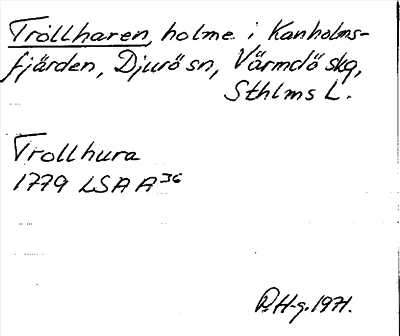 Trollharen, holme i Kanholms-
fjärden, Djurö sn, Värmdö skg,
Sthlms L.
Trollhura
1779 LSA A³⁶
R.H-g. 1971.